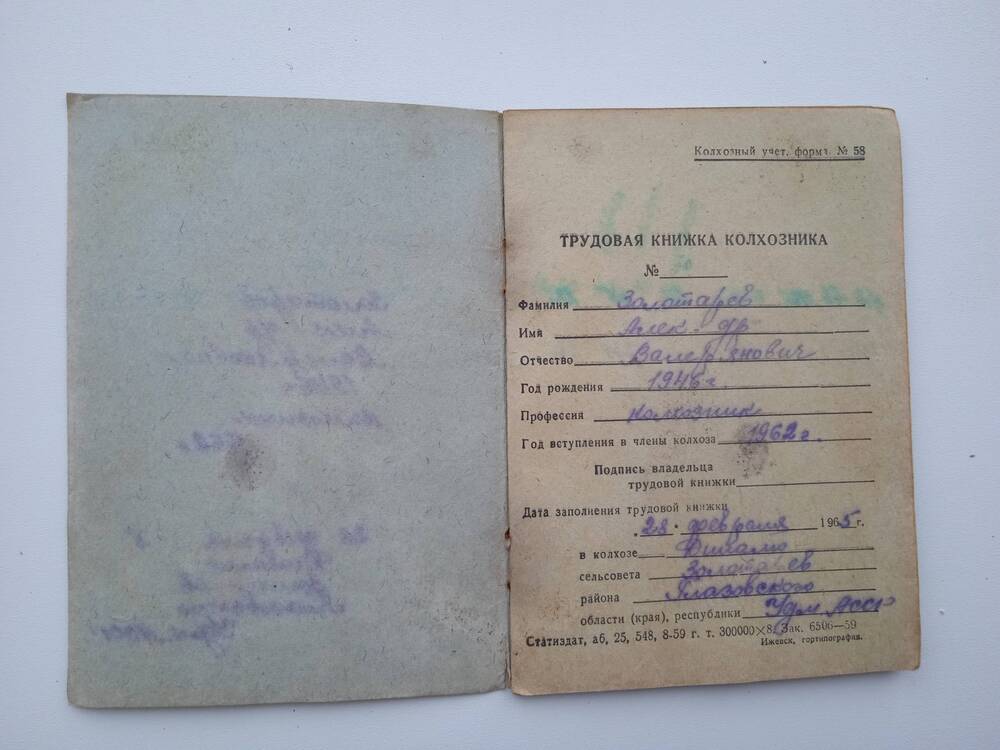 Колхозный учет. форма № 58
ТРУДОВАЯ КНИЖКА КОЛХОЗНИКА
№
Фамилия Золотарев
Имя Алек-др
Отчество Валерьянович
Год рождения 1946 г.
Профессия колхозник
Год вступления в члены колхоза 1962 г.
Подпись владельца
трудовой книжки
Дата заполнения трудовой книжки
28. февраля 1965 г.
в колхозе Динамо
сельсовета
района Глазовского
области (края), республики Удм. АССР
Статиздат, аб, 25, 548, 8-59 г. т. 300000×8. Зак. 6506—59
Ижевск, гортипография.